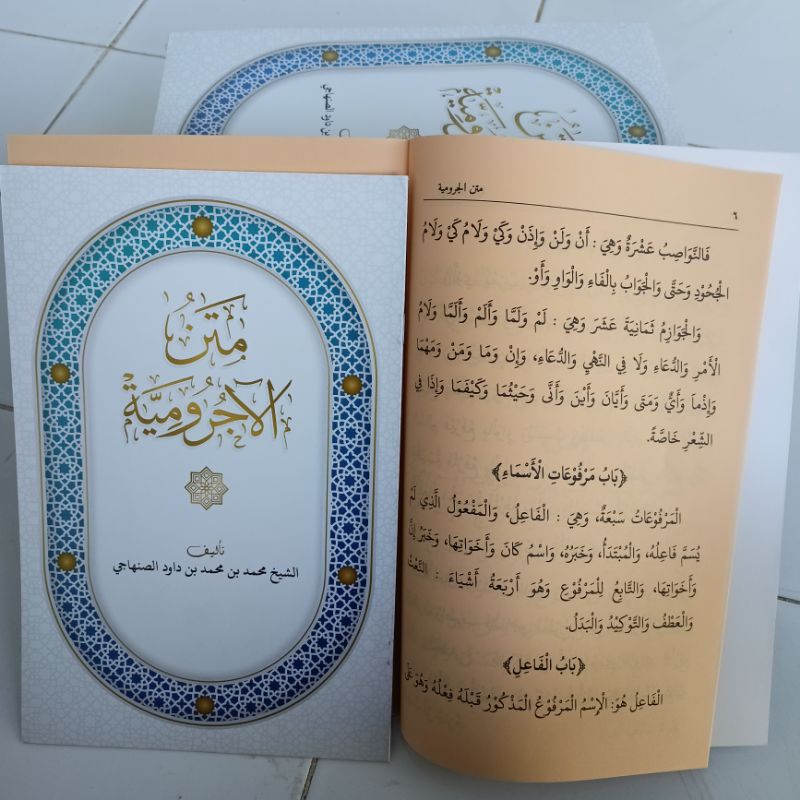 متن
الآجرومية
تأليف
الشيخ محمد بن محمد بن داود الصنهاجي
متن الجرومية
٦
فَالنَّوَاصِبُ عَشَرَةٌ وَهِيَ : أَنْ وَلَنْ وَإِذَنْ وَكَيْ وَلَامُ كَيْ وَلَامُ
الْجُحُوْدِ وَحَتَّى وَالْجَوَابُ بِالْفَاءِ وَالْوَاوِ وَأَوْ.
وَالْجَوَازِمُ ثَمَانِيَةَ عَشَرَ وَهِيَ : لَمْ وَلَمَّا وَأَلَمْ وَأَلَمَّا وَلَامُ
الْأَمْرِ وَالدُّعَاءِ وَلَا فِي النَّهْيِ وَالدُّعَاءِ، وَإِنْ وَمَا وَمَنْ وَمَهْمَا
وَإِذْمَا وَأَيٌّ وَمَتَى وَأَيَّانَ وَأَيْنَ وَأَنَّى وَحَيْثُمَا وَكَيْفَمَا وَإِذَا فِي
الشِّعْرِ خَاصَّةً.
﴿بَابُ مَرْفُوْعَاتِ الْأَسْمَاءِ﴾
الْمَرْفُوْعَاتُ سَبْعَةٌ، وَهِيَ : الْفَاعِلُ، وَالْمَفْعُوْلُ الَّذِي لَمْ
يُسَمَّ فَاعِلُهُ، وَالْمُبْتَدَأُ، وَخَبَرُهُ، وَاسْمُ كَانَ وَأَخَوَاتِهَا، وَخَبَرُ إِنَّ
وَأَخَوَاتِهَا، وَالتَّابِعُ لِلْمَرْفُوْعِ وَهُوَ أَرْبَعَةُ أَشْيَاءَ : النَّعْتُ
وَالْعَطْفُ وَالتَّوْكِيْدُ وَالْبَدَلُ.
﴿بَابُ الْفَاعِلِ﴾
الْفَاعِلُ هُوَ: الْإِسْمُ الْمَرْفُوْعُ الْمَذْكُوْرُ قَبْلَهُ فِعْلُهُ وَهُوَ عَلَى